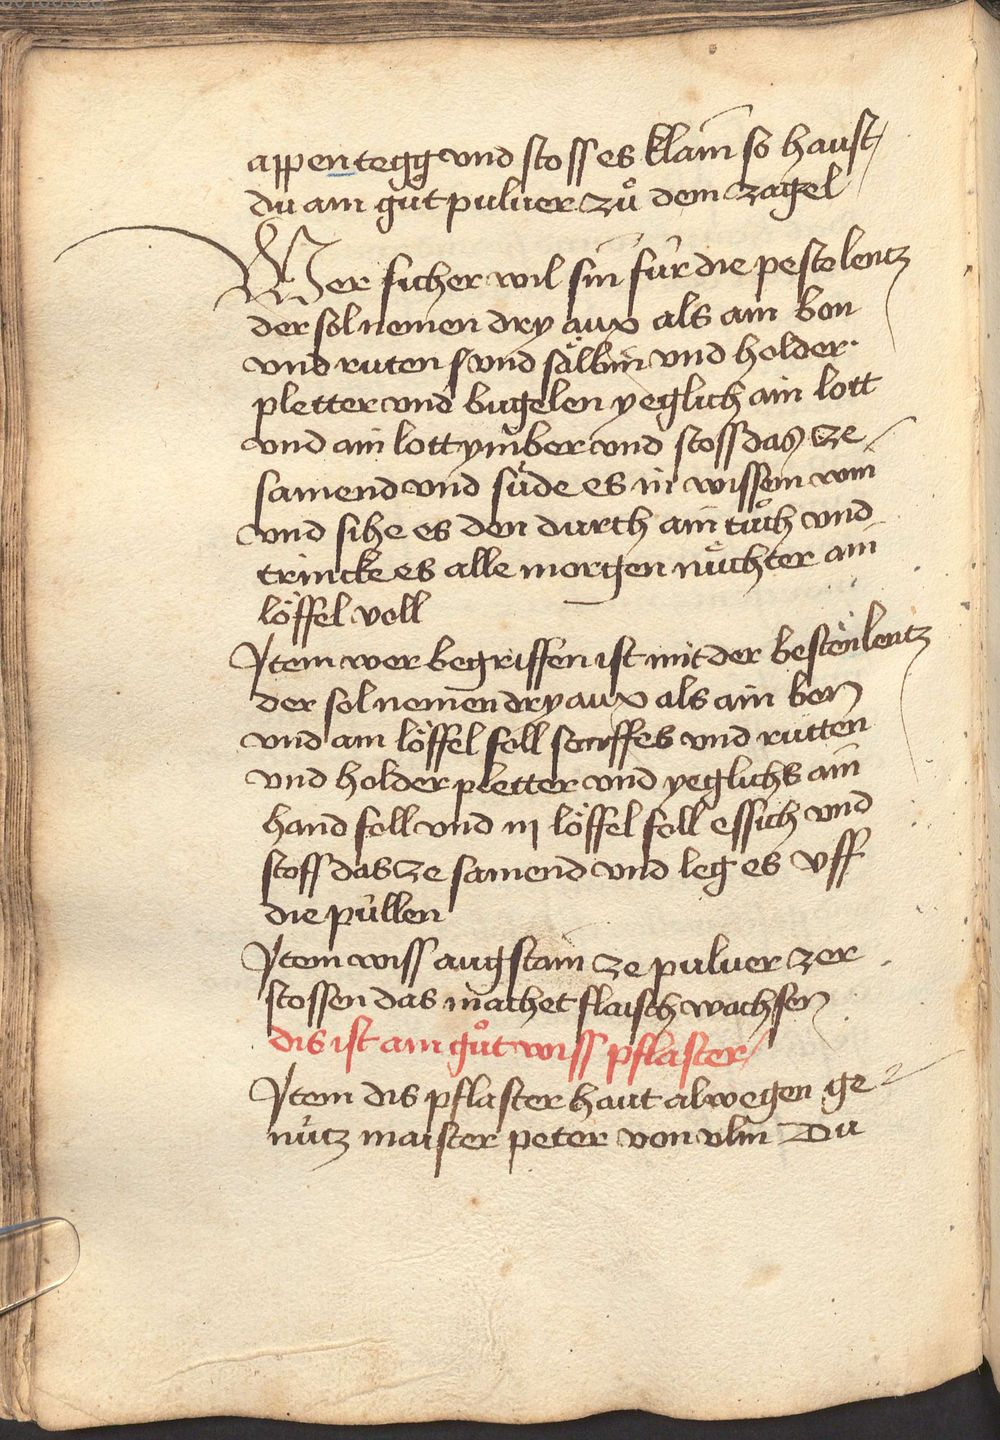 appentegg vnd stoss es klain so haust
du ain gůt puluer zů dem zagel
Wer sicher wil sin für die pestelentz
der sol nemen dry aux als ain bon
vnd ruten vnd sälbin vnd holder
pletter vnd bugelen yeglich ain lott
vnd ain lott ymber vnd stoss das ze
samend vnd süde es in wissem win
vnd sihe es den durch ain tůch vnd
trincke es alle morgen nüchter ain
löffel voll
Item wer begriffen ist mit der bestenlentz
der sol nemen dry aux als ain bon
vnd ain löffel foll senffes vnd rutten
vnd holder pletter vnd yeglichs ain
hand foll vnd iij löffel foll essich vnd
stoss das ze samend vnd leg es vff
die püllen
Item wiss augstain ze puluer zer
stossen das machet flaisch wachsen
dis ist ain gůt wiss pflaster
Item dis pflaster haut alwegen ge
nütz maister peter von vlm Du